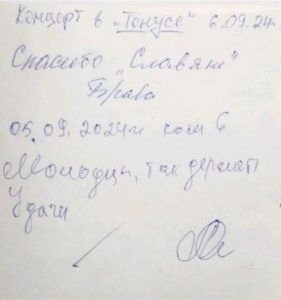 Концерт в "Тонусе" 6.09.24г.
Спасибо "Славяне"
Браво
05.09.2024г ком 6
Молодцы, так держать
Удачи